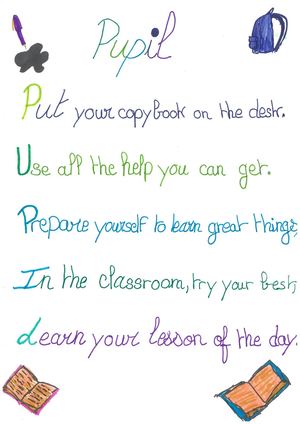 Pupil
Put your copybook on the desk.
Use all the help you can get.
Prepare yourself to learn great things,
In the classroom, try your best,
Learn your lesson of the day.